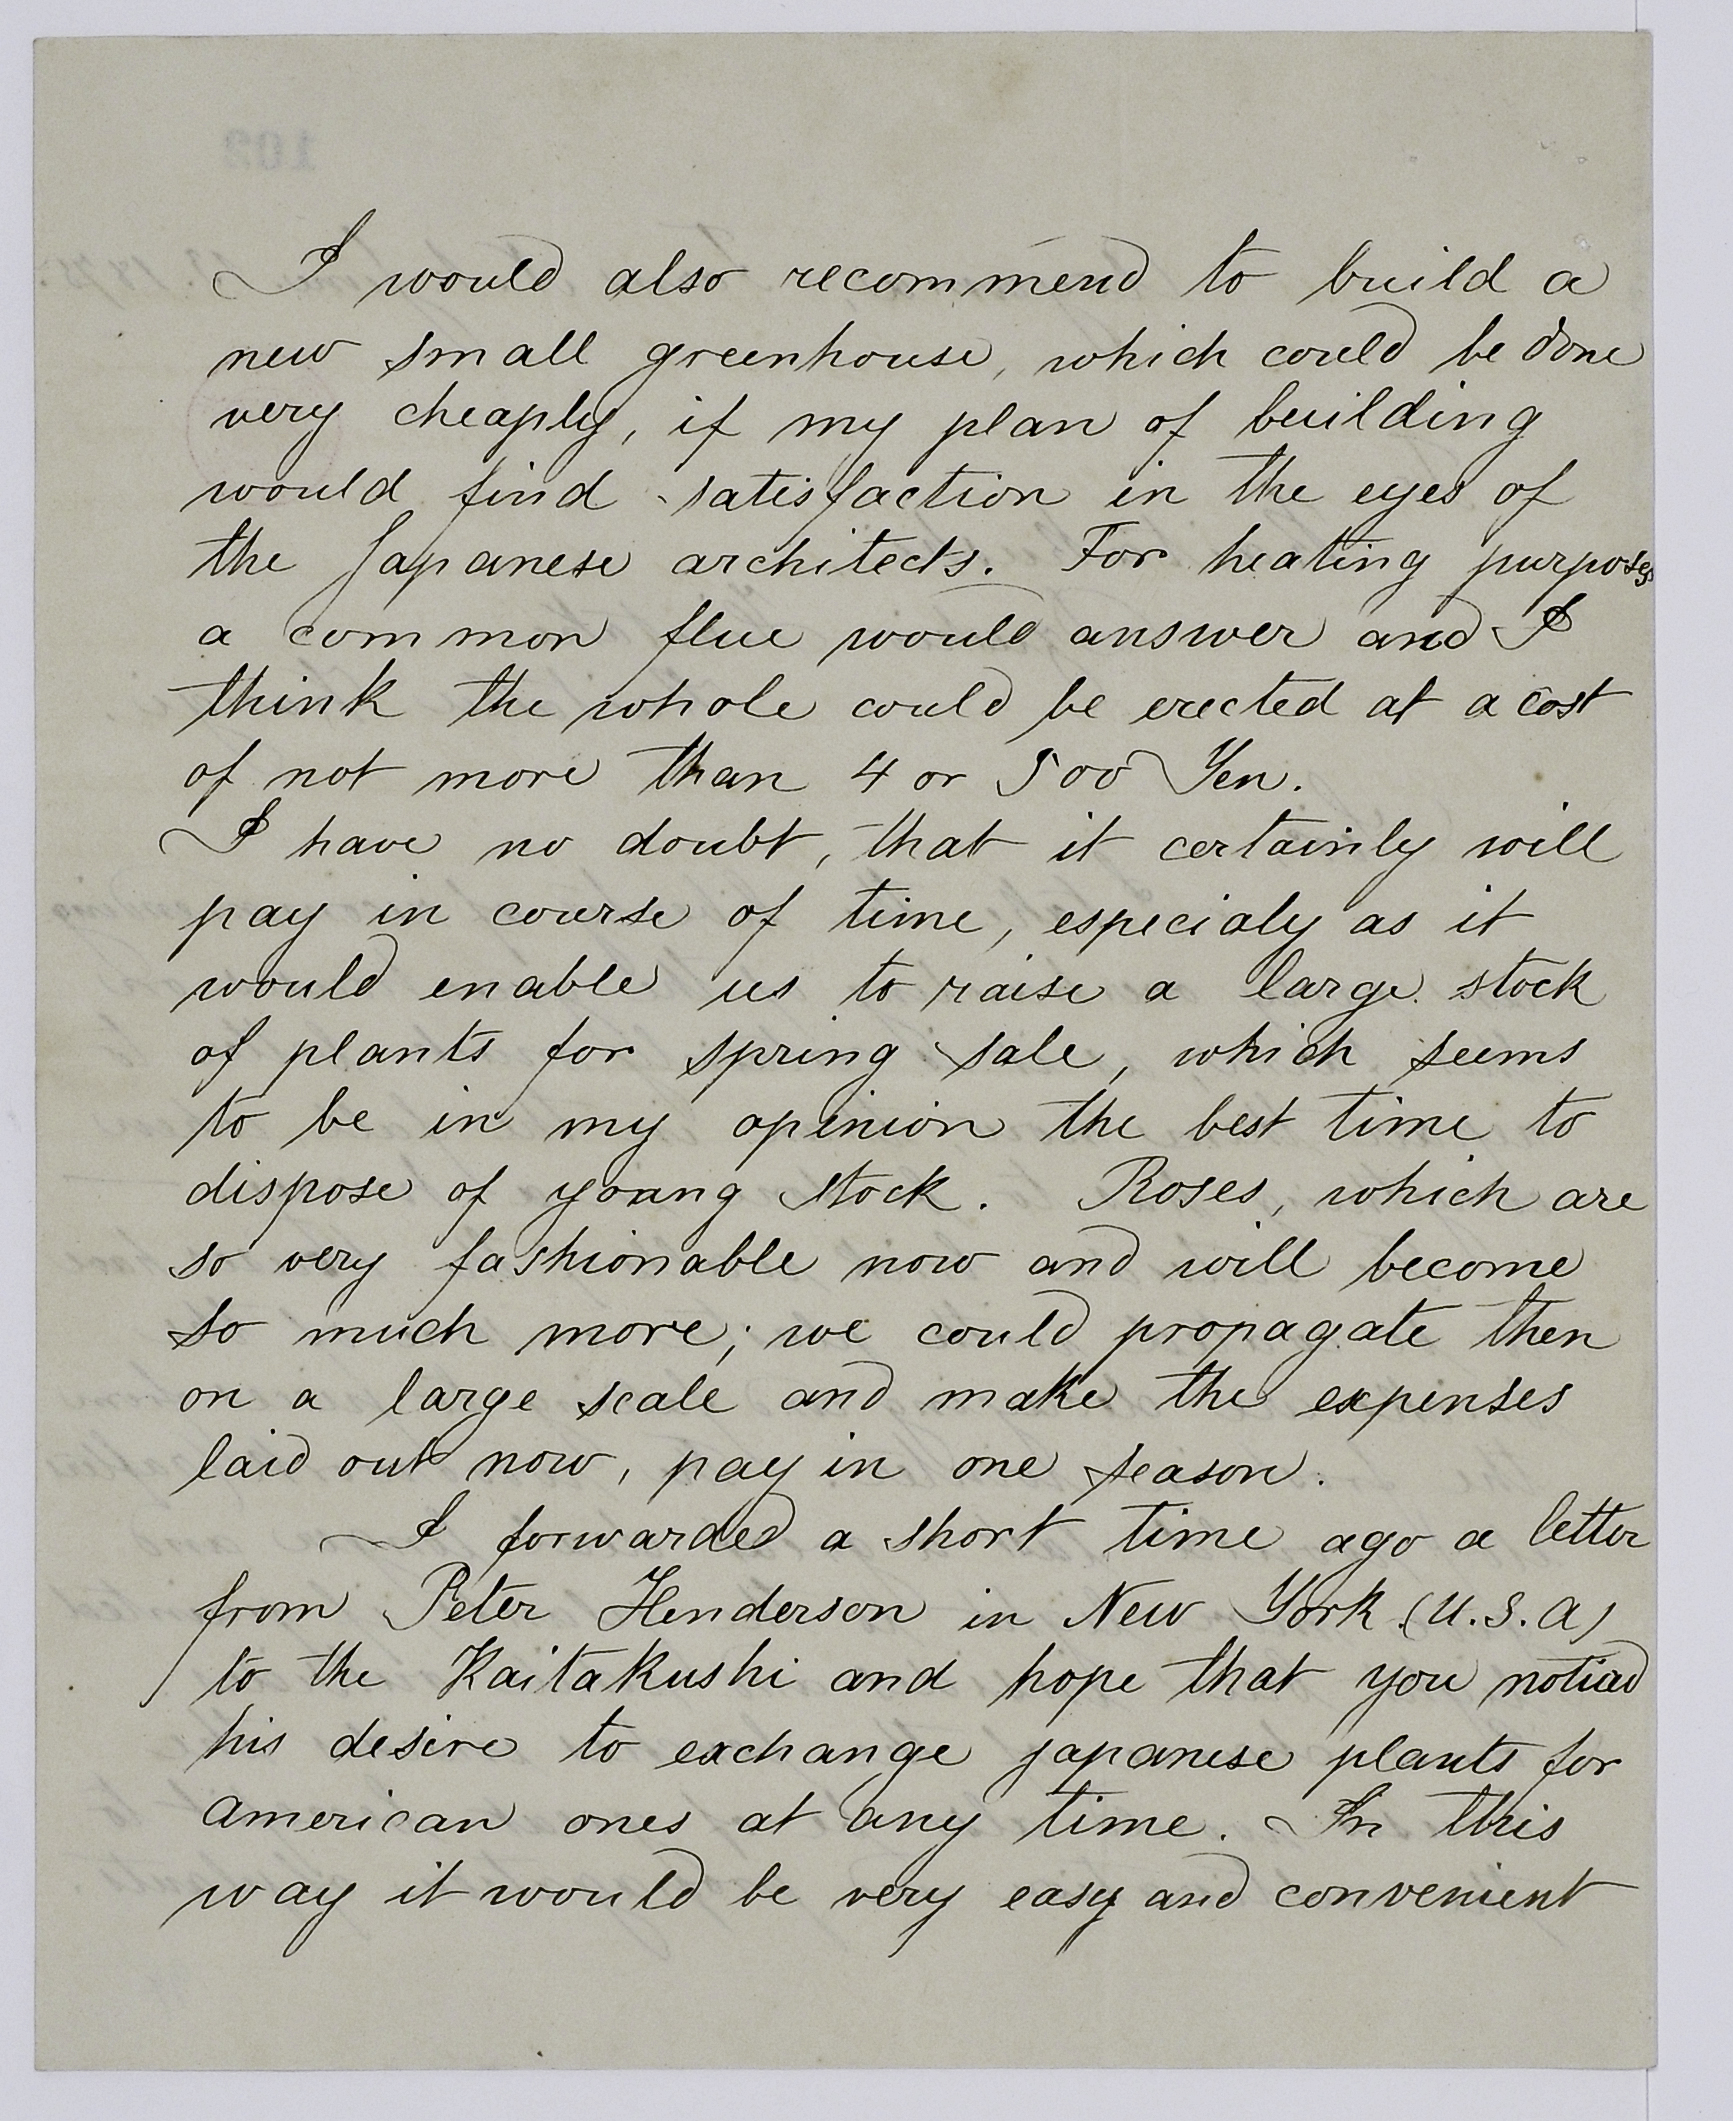 I would also recommend to build a
new small greenhouse, which could be done
very cheaply, if my plan of building
would find satisfaction in the eyes of
the Japanese architects. For heating purposes
a common flue would answer and I
think the whole could be erected at a cost
of not more than 4 or 500 Yen.
I have no doubt, that it certainly will
pay in course of time, especialy as it
would enable us to raise a large stock
of plants for spring sale, which seems
to be in my opinion the best time to
dispose of young stock. Roses, which are
so very fashionable now and will become
so much more; we could propagate then
on a large scale and make the expenses
laid out now, pay in one season.
I forwarded a short time ago a letter
from Peter Henderson in New York (U.S.A)
to the Kaitakushi and hope that you noticed
his desire to exchange japanese plants for
american ones at any time. In this
way it would be very easy and convenient